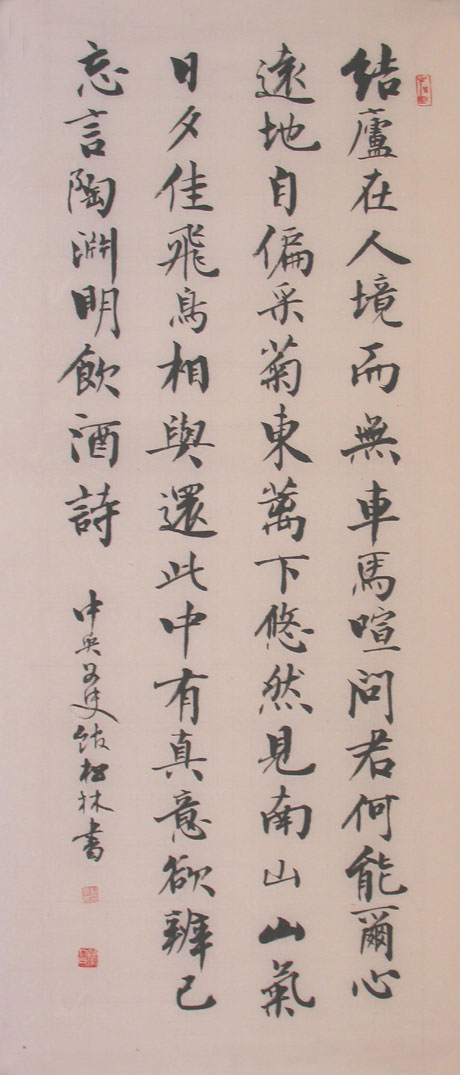 結廬在人境而無車馬喧問君何能爾心
遠地自偏采菊東萬下悠然見南山山氣
日夕佳飛鳥相與還此中有真意欲辨已
忘言陶淵明飲酒詩
中央文史館松林書